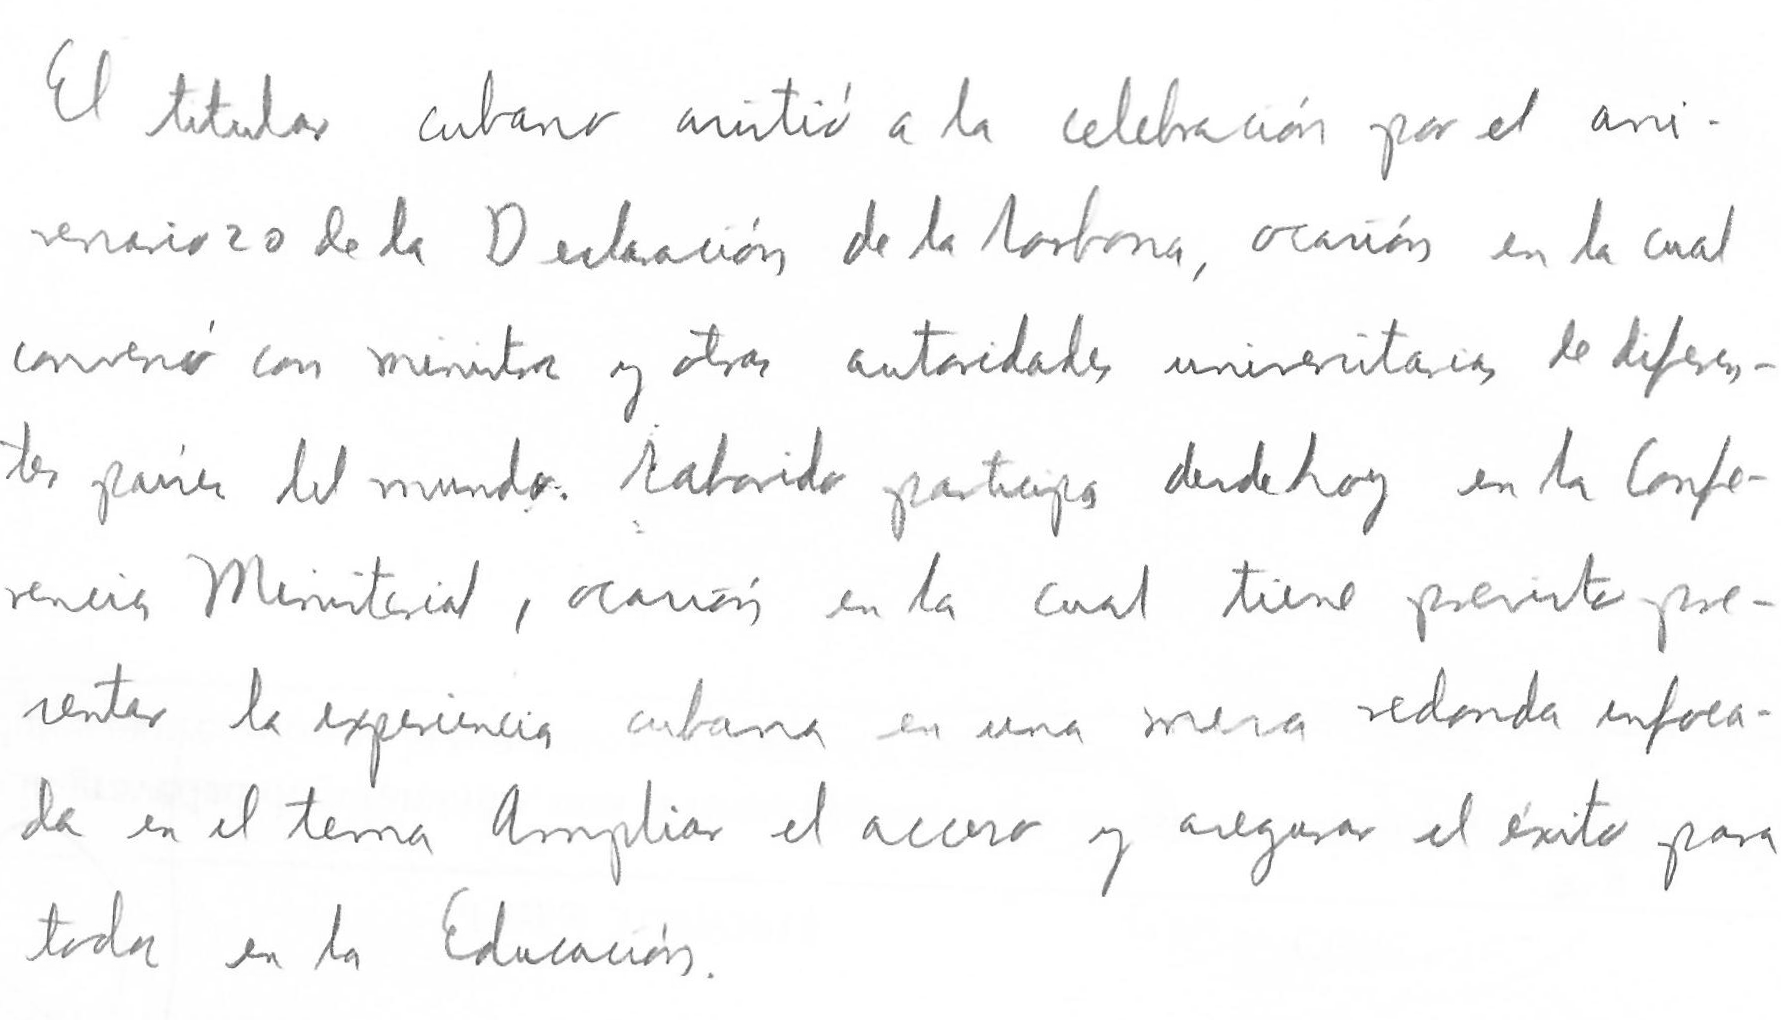 El titular cubano asistió a la celebración por el ani-
versario 20 de la Declaración de la Sorbona, ocasión en la cual
conversó con ministros y otras autoridades universitarias de diferen-
tes países del mundo. Saborido participa desde hoy en la Confe-
rencia Ministerial, ocasión en la cual tiene previsto pre-
sentar la experiencia cubana en una mesa redonda enfoca-
da en el tema Ampliar el acceso y asegurar el éxito para
todos en la Educación.